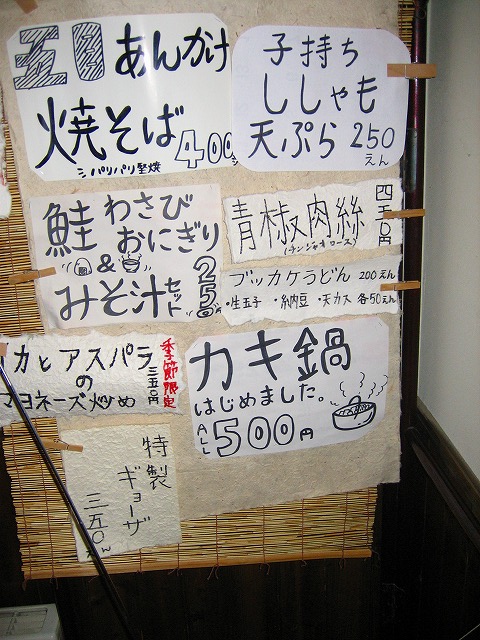 五目あんかけ
焼そば400
パリパリ堅焼
子持ち
ししゃも
天ぷら250
えん
鮭わさび
おにぎり
&
みそ汁セット250
青椒肉絲
(チンジャオロース)
四二〇円
ブッカケうどん 200えん
・生玉子 ・納豆 ・天カス 各50えん
カとアスパラ
の
マヨネーズ炒め
三五〇円
季節限定
カキ鍋
はじめました。
ALL 500円
特製
ギョーザ
三五〇えん